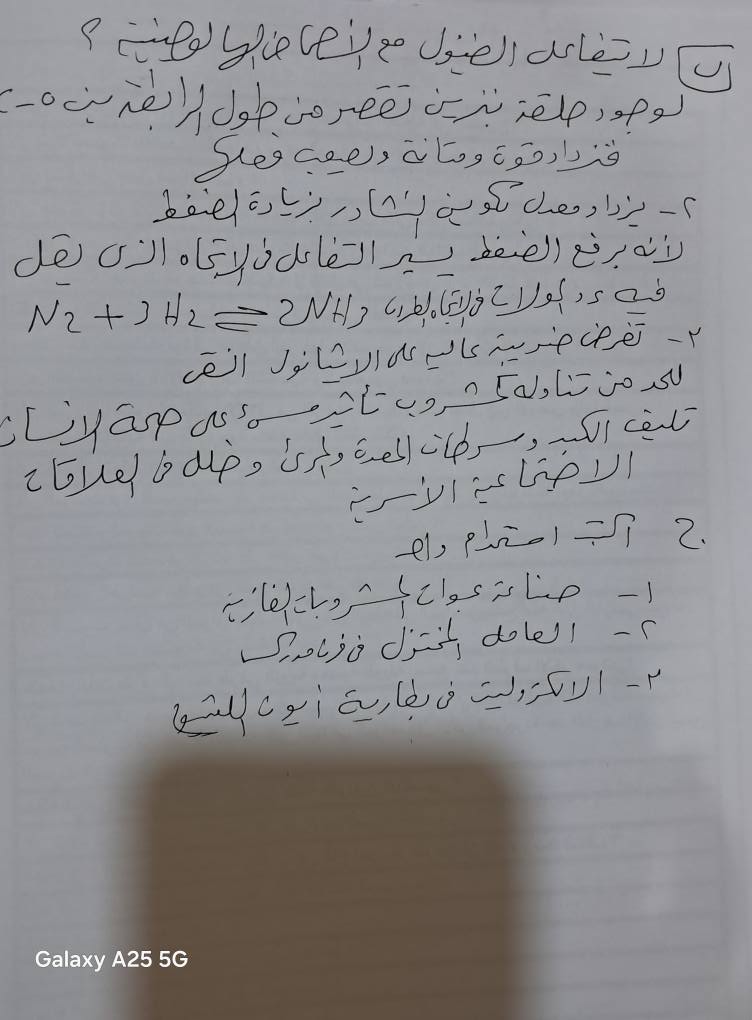 ب) لا يتفاعل الفينول مع الأحماض الهالوجينية ؟
لوجود حلقة بنزين تقصر من طول الرابطة بين C-O
فتزداد قوة ومتانة ويصعب فصلها
٢- يزداد معدل تكوين النشادر بزيادة الضغط
لأنه برفع الضغط يسير التفاعل في الاتجاه الذى يقل
فيه عدد المولات في الاتجاه الطردى N2 + 3H2 ⇌ 2NH3
٣- تفرض ضريبة عالية على الايثانول النقى
للحد من تناوله كمشروب تأثير مسئ على صحة الانسان
تليف الكبد وسرطان المعدة والمرئ وخلل في العلاقات
الاجتماعية الأسرية
ج. اكتب استخدام واحد
١- صناعة عبوات المشروبات الغازية
٢- العامل المختزل في فرن مدركس
٣- الالكتروليت في بطارية أيون الليثيوم
Galaxy A25 5G